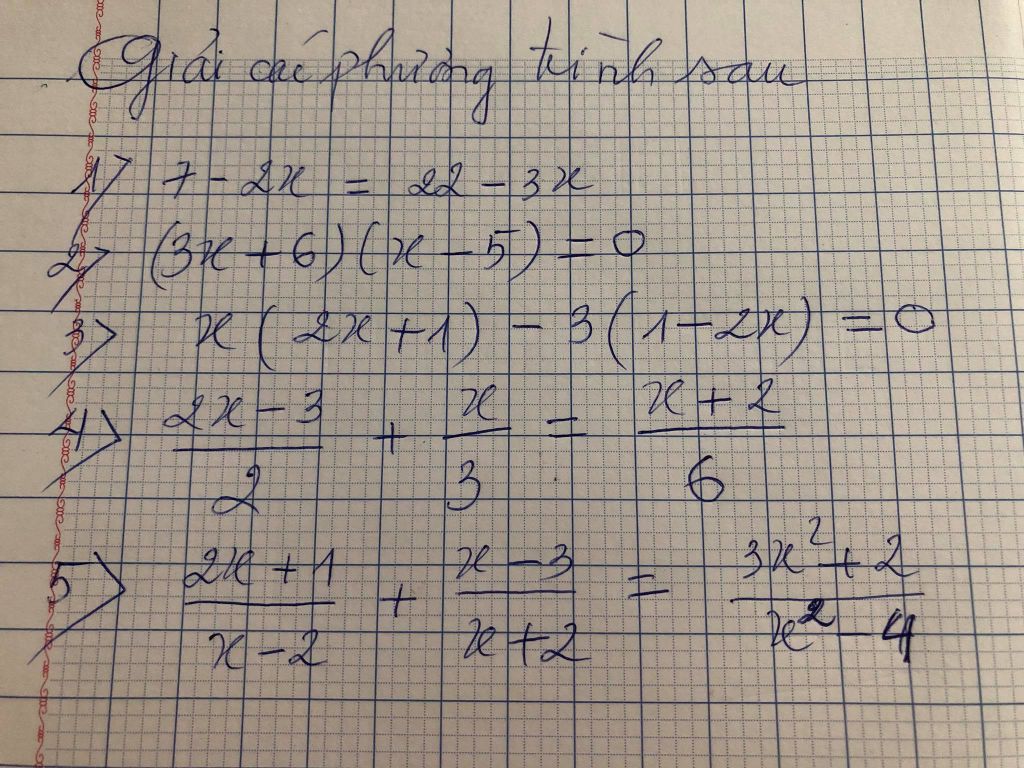 Giải các phường trình sau
1) 7 - 2x = 22 - 3x
2) (3x + 6)(x - 5) = 0
3) x(2x + 1) - 3(1 - 2x) = 0
4) \frac{2x - 3}{2} + \frac{x}{3} = \frac{x + 2}{6}
5) \frac{2x + 1}{x - 2} + \frac{x - 3}{x + 2} = \frac{3x^2 + 2}{x^2 - 4}